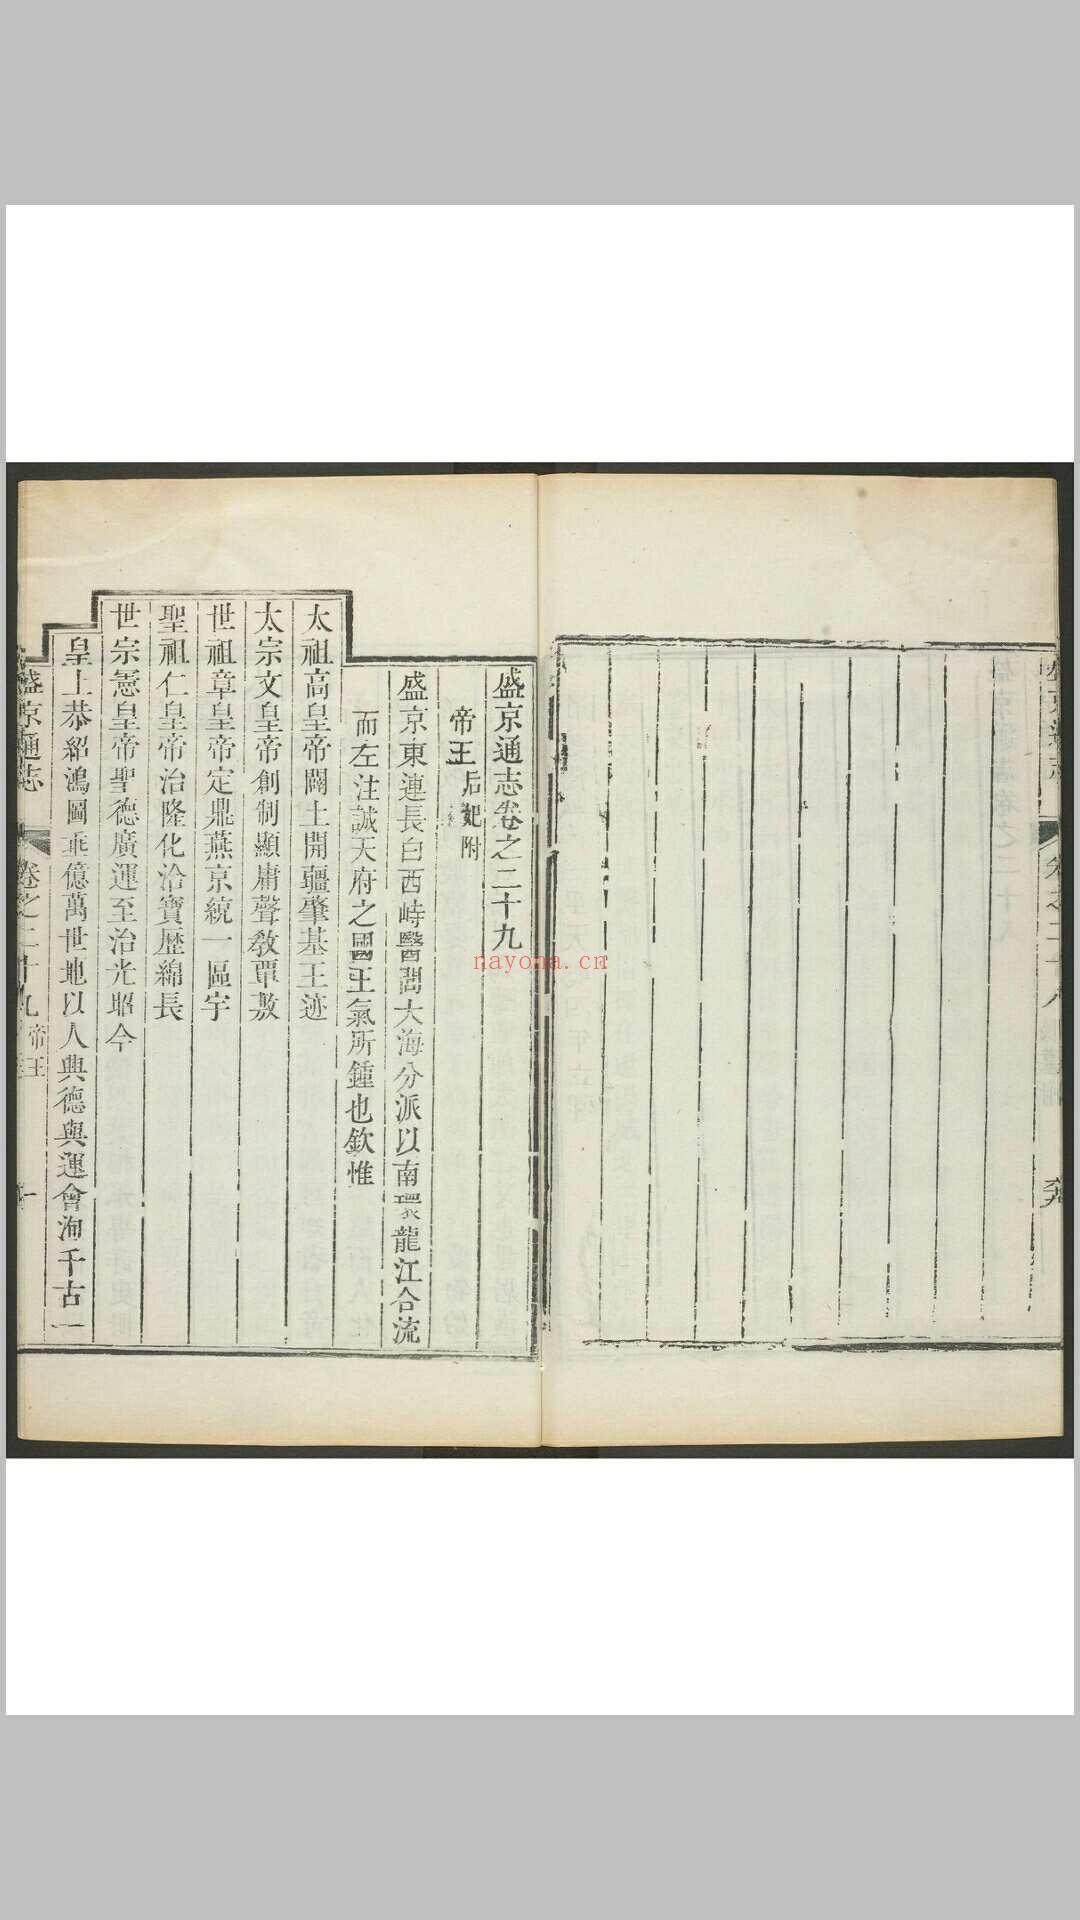 盛京通志卷之二十九
帝王后妃附
盛京東連長白西峙醫閭大海分派以南環龍江合流
而左注誠天府之國王氣所鍾也欽惟
太祖高皇帝闢土開疆肇基王迹
太宗文皇帝創制顯庸聲敎覃敷
世祖章皇帝定鼎燕京統一區宇
聖祖仁皇帝治隆化洽寶歷綿長
世宗憲皇帝聖德廣運至治光昭今
皇上恭紹鴻圖垂億萬世地以人興德與運會洵千古一
盛京通志 卷之二十九 帝王 一
nayona.cn